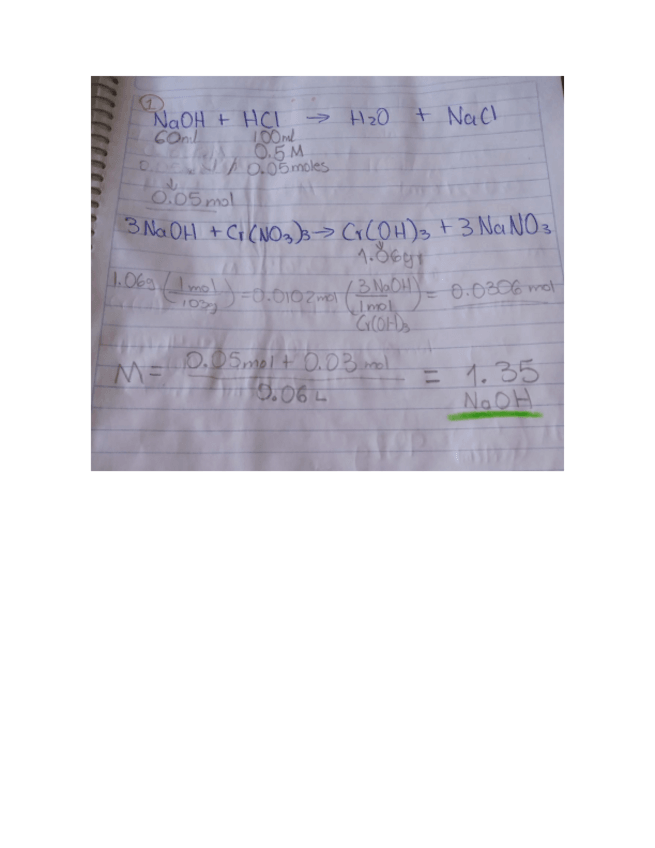 1
NaOH + HCl → H2O + NaCl
60ml 100ml
0.5 M
0.05moles
0.05mol
3NaOH + Cr(NO3)3 → Cr(OH)3 + 3NaNO3
1.06g
1.06g (1mol/103g) = 0.0102mol (3NaOH/1mol Cr(OH)3) = 0.0306 mol
M = 0.05mol + 0.03mol / 0.06L = 1.35
NaOH